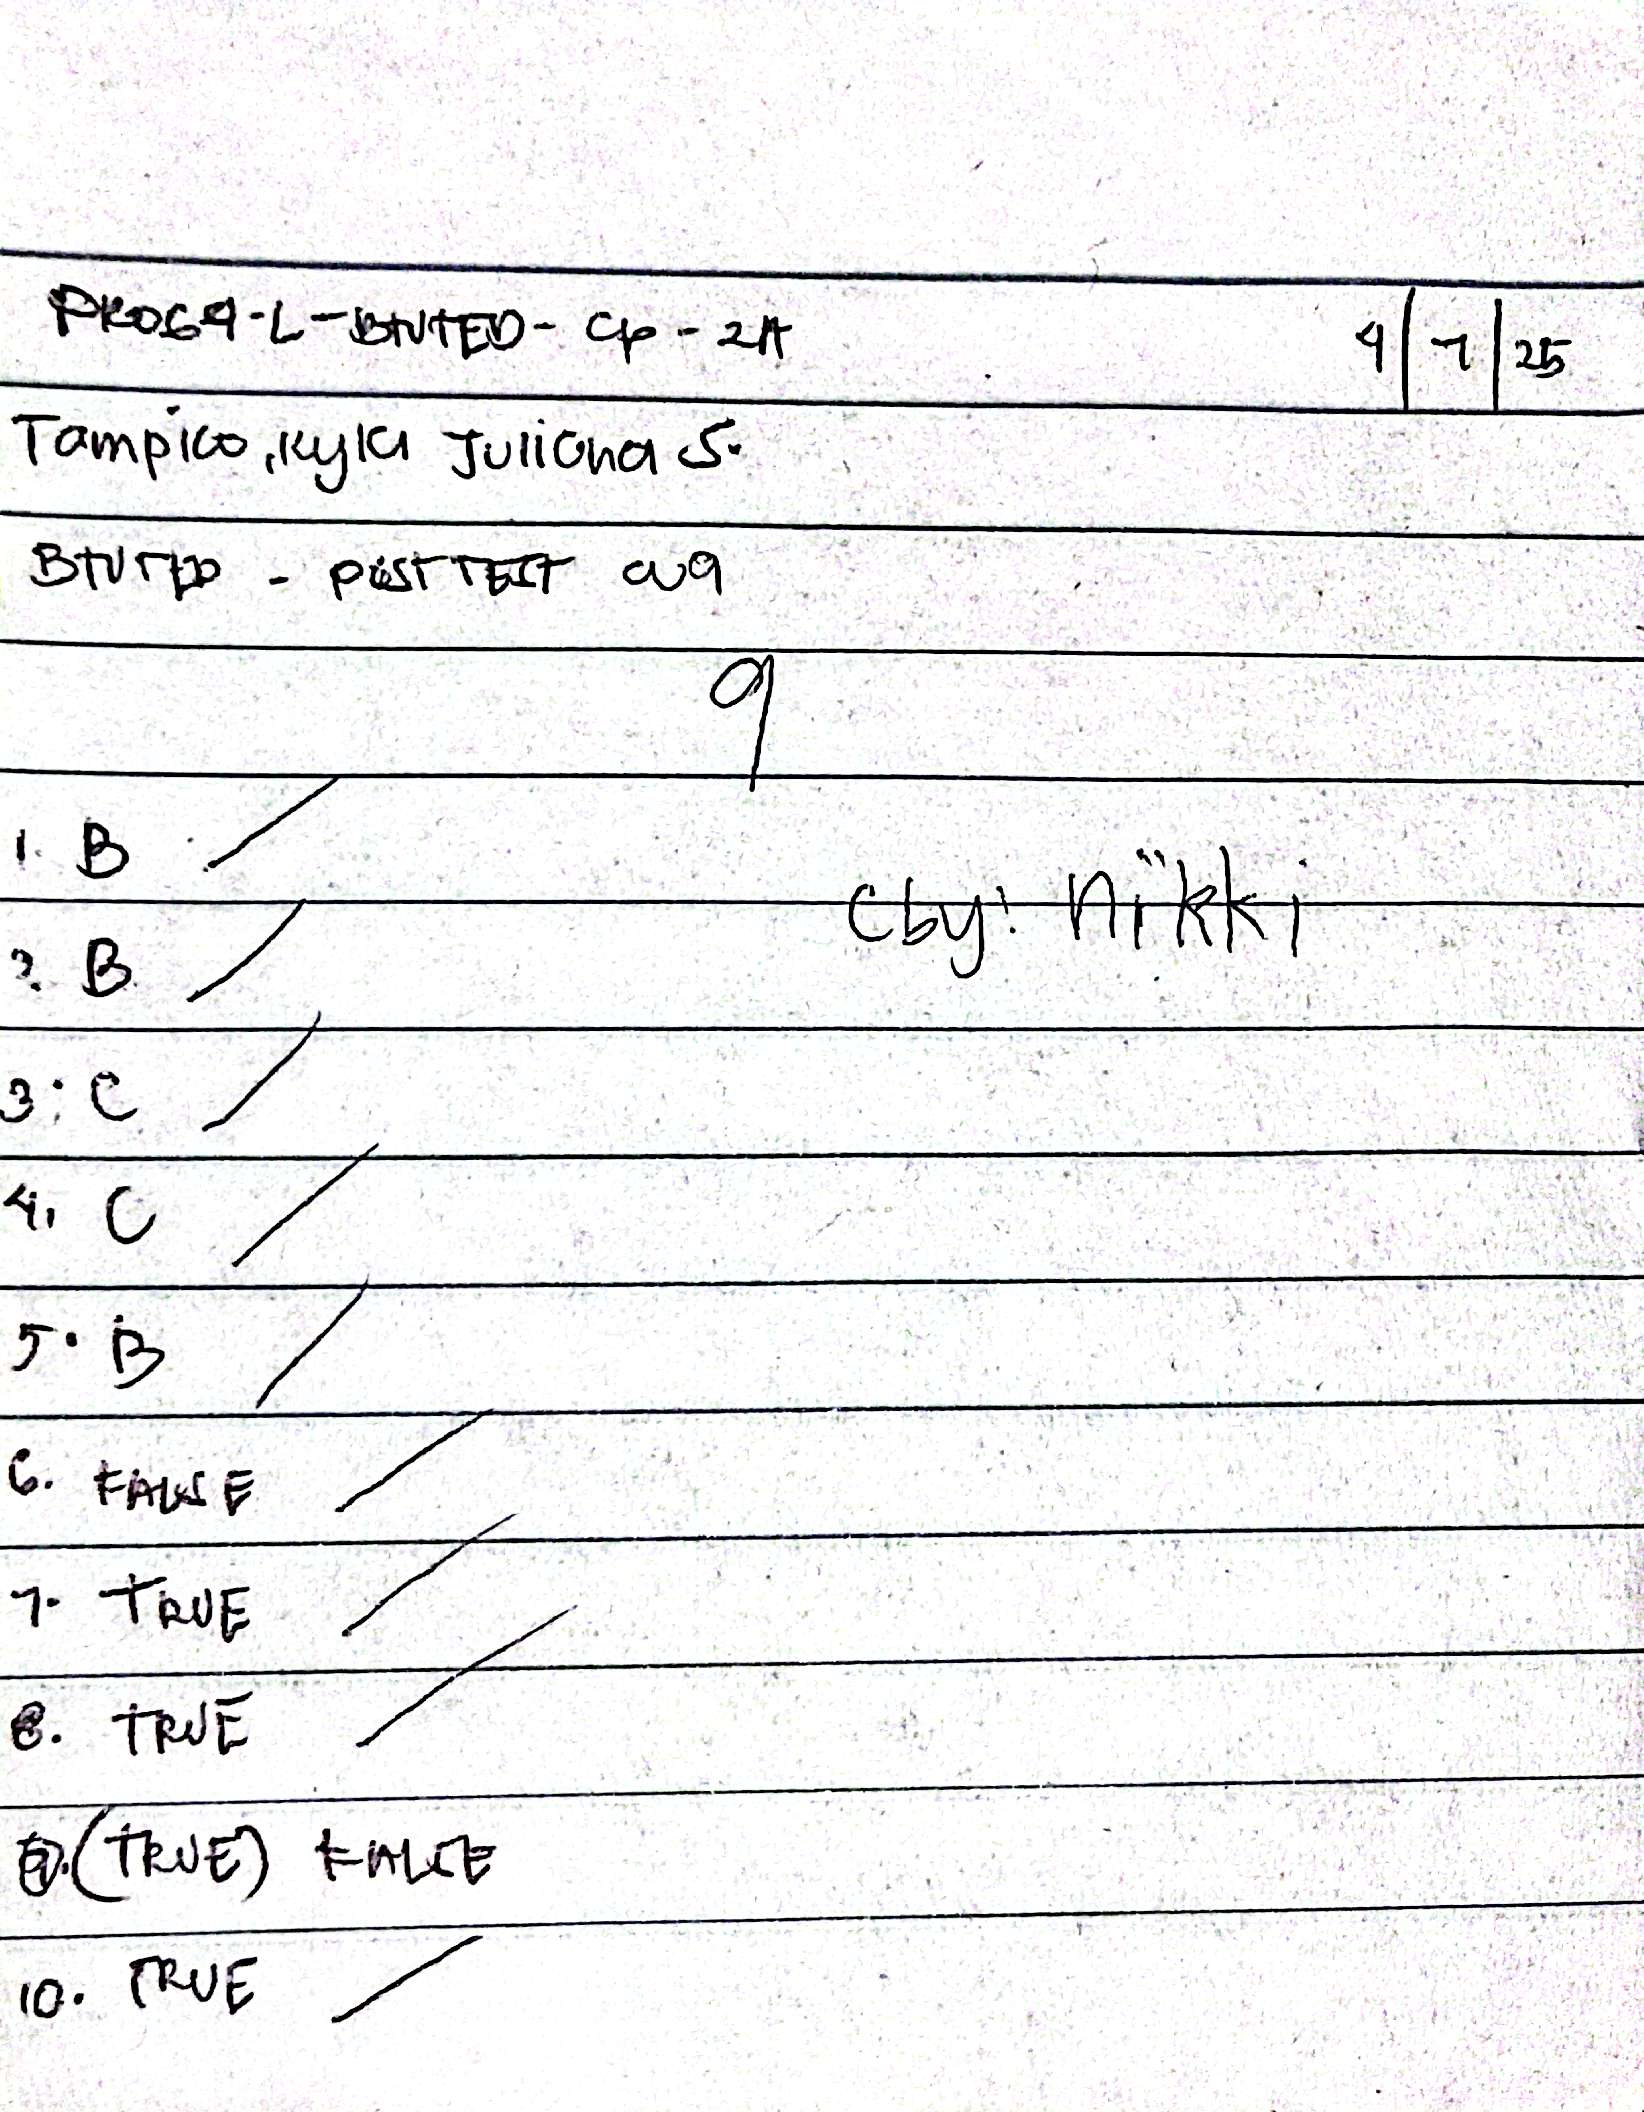 PROG9-L-BTVTED-CP-2A 4|7|25
Tampico, Kyla Juliana S.
BTVTED - POST TEST CU9
9
1. B /
Cby: Nikki
2. B /
3. C /
4. C /
5. B /
6. FALSE /
7. TRUE /
8. TRUE /
9. (TRUE) FALSE
10. TRUE /